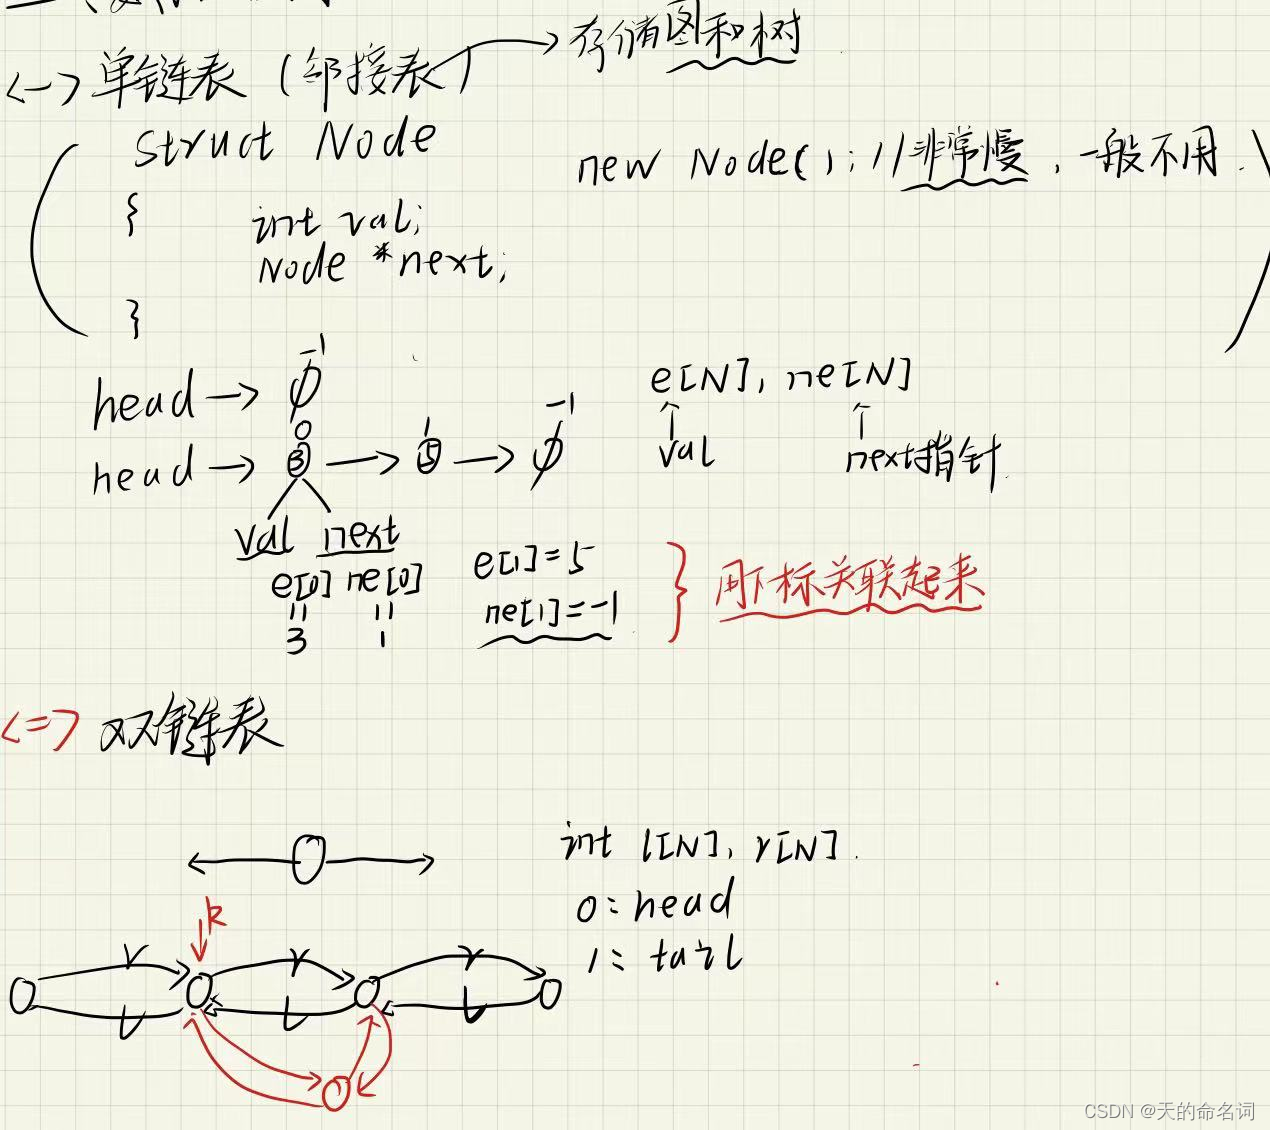 存储图和树
<一> 单链表 (邻接表)
struct Node
new Node(); //非常慢，一般不用.
{
int val;
Node *next;
}
-1
head → ∅
e[N], ne[N]
-1
0 1
head → 3 → 5 → ∅
val next指针
val next
e[0] ne[0]
e[1]=5
用下标关联起来
ne[1]=-1
3 1
<二> 双链表
int l[N], r[N].
0: head
k
1: tail
r r r
L L L
CSDN @天的命名词